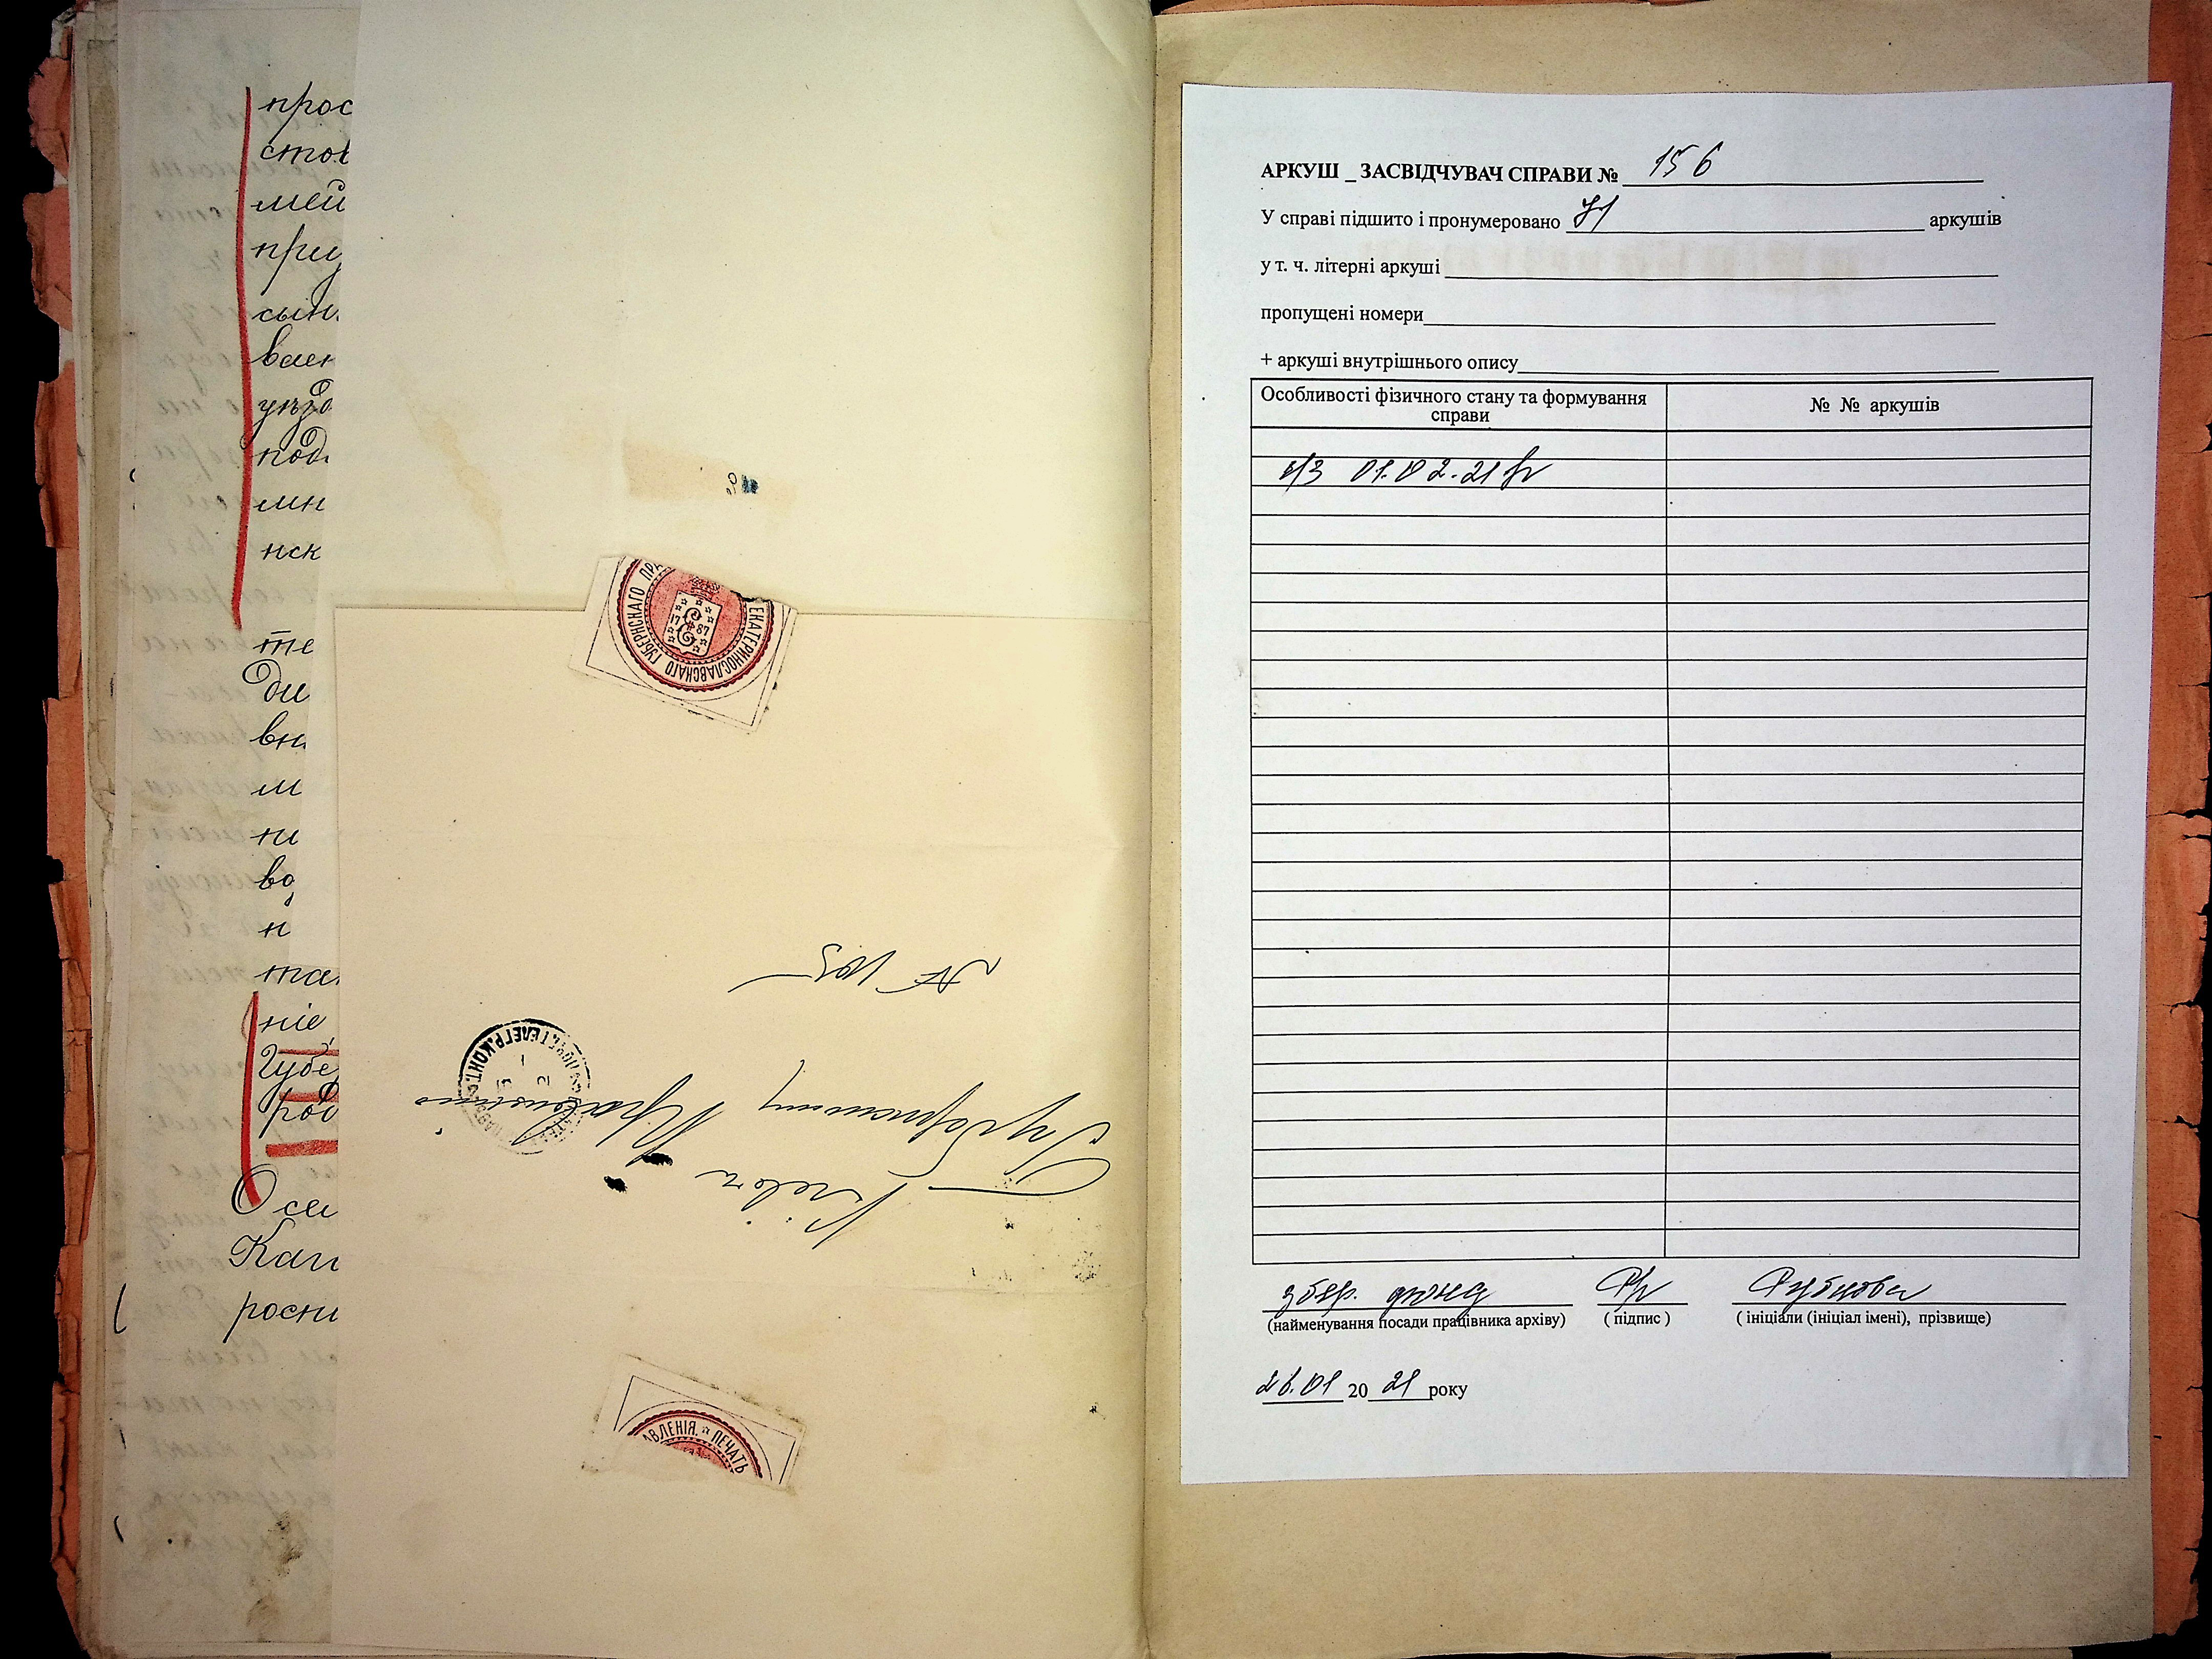 прос
стов
мей
при
сын
вает
уѣзд
под
мн
нск
те
ди
вн
м
ни
во
н
так
ніе
Губе
род
Осе
Кан
росп
ЕКАТЕРИНОСЛАВСКАГО ГУБЕРНСКАГО ПРА
17 87
№ 105
Кіевъ
Губернскому
Правленію
ПОЧТ. ТЕЛЕГР. КОНТ.
АВЛЕНІЯ. * ПЕЧАТЬ
АРКУШ _ ЗАСВІДЧУВАЧ СПРАВИ № 156
У справі підшито і пронумеровано 71 аркушів
у т. ч. літерні аркуші
пропущені номери
+ аркуші внутрішнього опису
Особливості фізичного стану та формування справи
№ № аркушів
01.02.21
збер. фонд
Рубцова
(найменування посади працівника архіву) ( підпис ) ( ініціали (ініціал імені), прізвище)
26.01 20 21 року